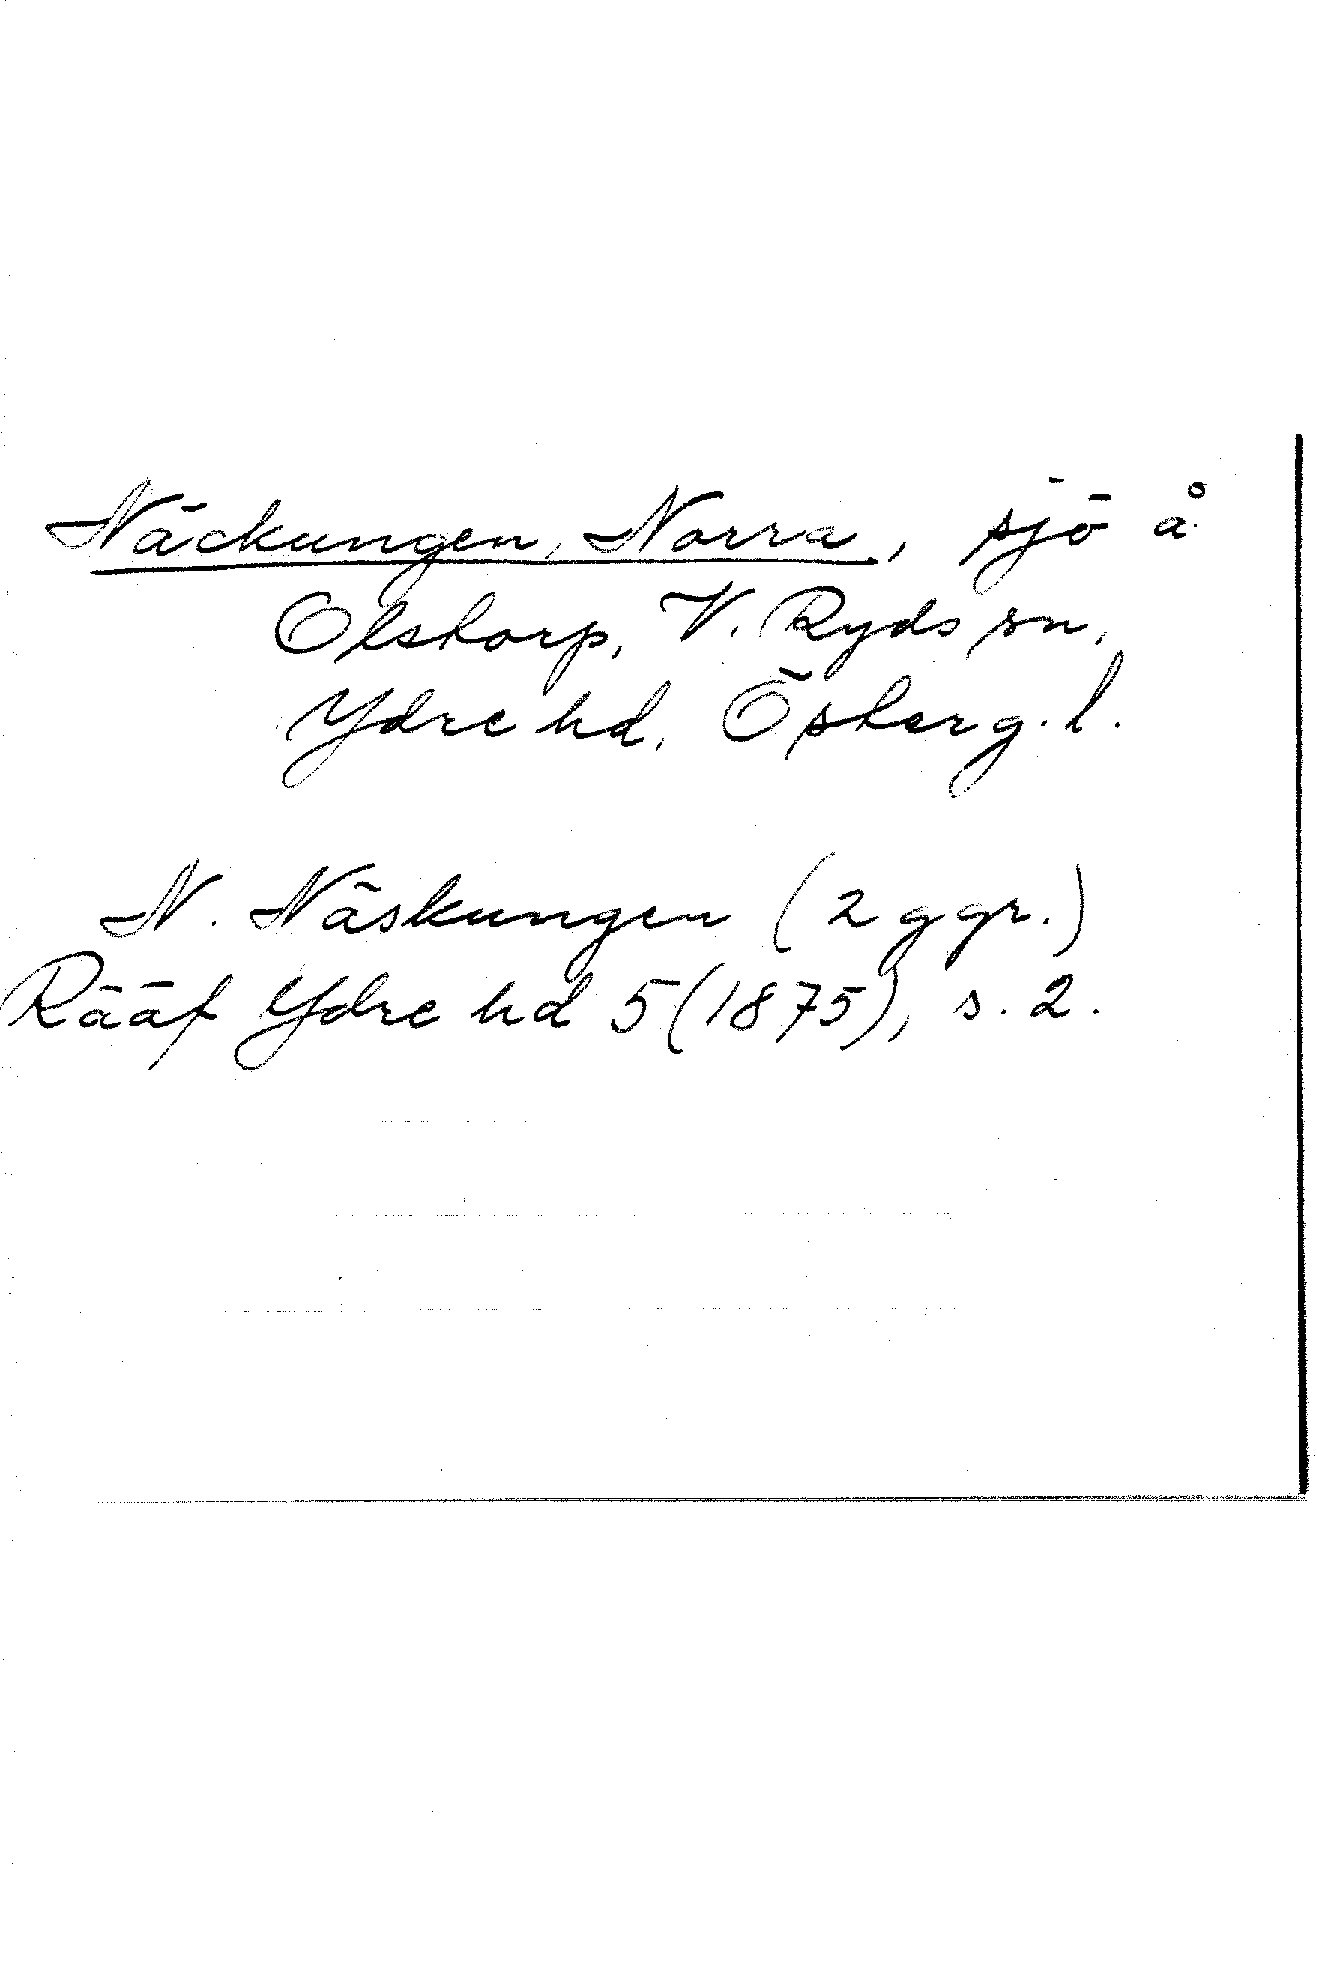 Näckungen, Norra, sjö å
Olstorp, V. Ryds sn,
Ydre hd, Österg. l.
N. Näskungen (2 ggr.)
Rääf Ydre hd 5 (1875), s. 2.